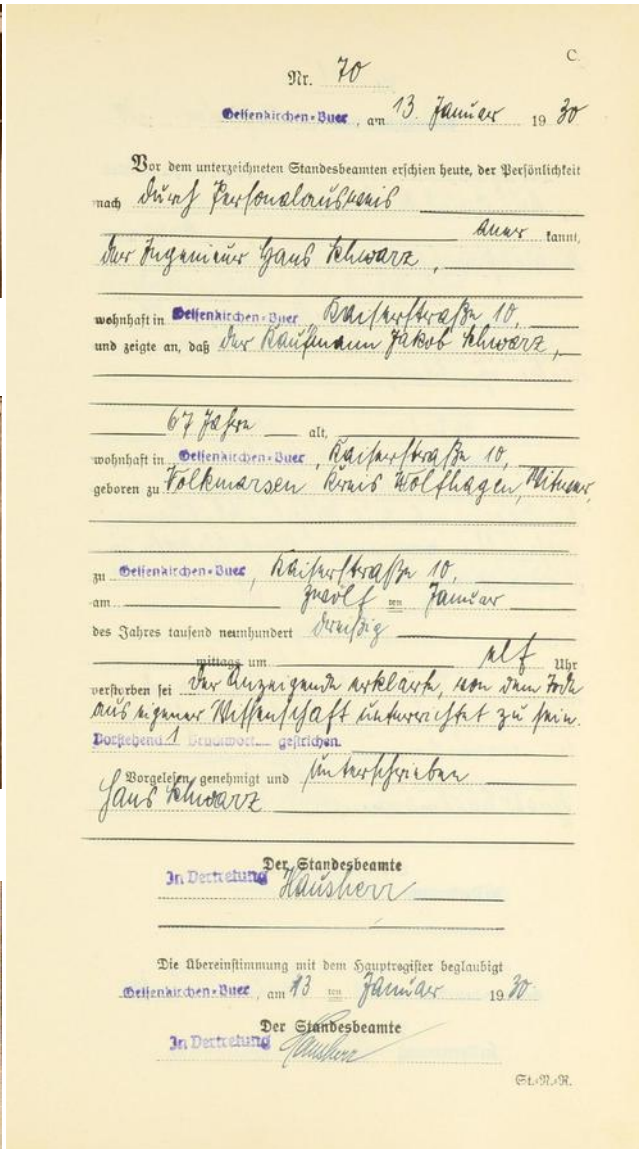 C.
Nr. 70
Gelsenkirchen-Buer, am 13. Januar 1930
Vor dem unterzeichneten Standesbeamten erschien heute, der Persönlichkeit
nach durch Personalausweis
aner kannt,
der Ingenieur Hans Schwarz,
wohnhaft in Gelsenkirchen-Buer Kaiserstraße 10,
und zeigte an, daß der Kaufmann Jakob Schwarz,
67 Jahre alt,
wohnhaft in Gelsenkirchen-Buer, Kaiserstraße 10,
geboren zu Volkmarsen Kreis Wolfhagen, Witwer,
zu Gelsenkirchen-Buer, Kaiserstraße 10,
am zwölf ten Januar
des Jahres tausend neunhundert dreißig
mittags um elf Uhr
verstorben sei Der Anzeigende erklärte, von dem Tode
aus eigener Wissenschaft unterrichtet zu sein.
Vorstehend 1 Druckwort gestrichen.
Vorgelesen, genehmigt und unterschrieben
Hans Schwarz
Der Standesbeamte
In Vertretung Hausherr
Die Übereinstimmung mit dem Hauptregister beglaubigt
Gelsenkirchen-Buer, am 13 ten Januar 1930
Der Standesbeamte
In Vertretung Hausherr
St.-N.-R.